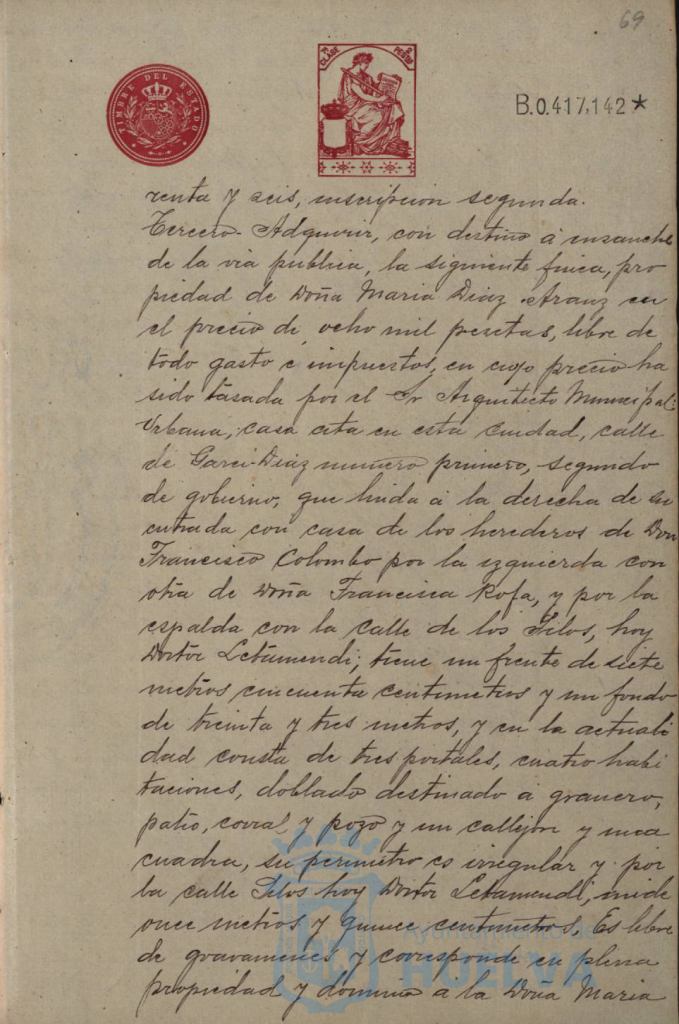 69
TIMBRE DEL ESTADO
CLASE
PESETAS
B.0.417,142*
renta y seis, inscripcion segunda.
Tercero. Adquirir, con destino á ensanche
de la via publica, la siguiente finca, pro
piedad de Doña Maria Diaz Aranz en
el precio de ocho mil pesetas, libre de
todo gasto é impuestos, en cuyo precio ha
sido tasada por el Sr Arquitecto Municipal:
Urbana; casa cita en esta Ciudad, calle
de Garci-Diaz numero primero, segundo
de gobierno, que linda á la derecha de su
entrada con casa de los herederos de Don
Francisco Colombo por la izquierda con
otra de Doña Francisca Rofa, y por la
espalda con la calle de los Silos, hoy
Doctor Letamendi; tiene un frente de siete
metros cincuenta centimetros y un fondo
de treinta y tres metros, y en la actuali
dad consta de tres portales, cuatro habi
taciones, doblado destinado á granero,
patio, corral y pozo y un callejon y una
cuadra, su perimetro es irregular y por
la calle Silos hoy Doctor Letamendi, mide
once metros y quince centimetros. Es libre
de gravamenes y corresponde en plena
propiedad y dominio a la Doña Maria
HUELVA